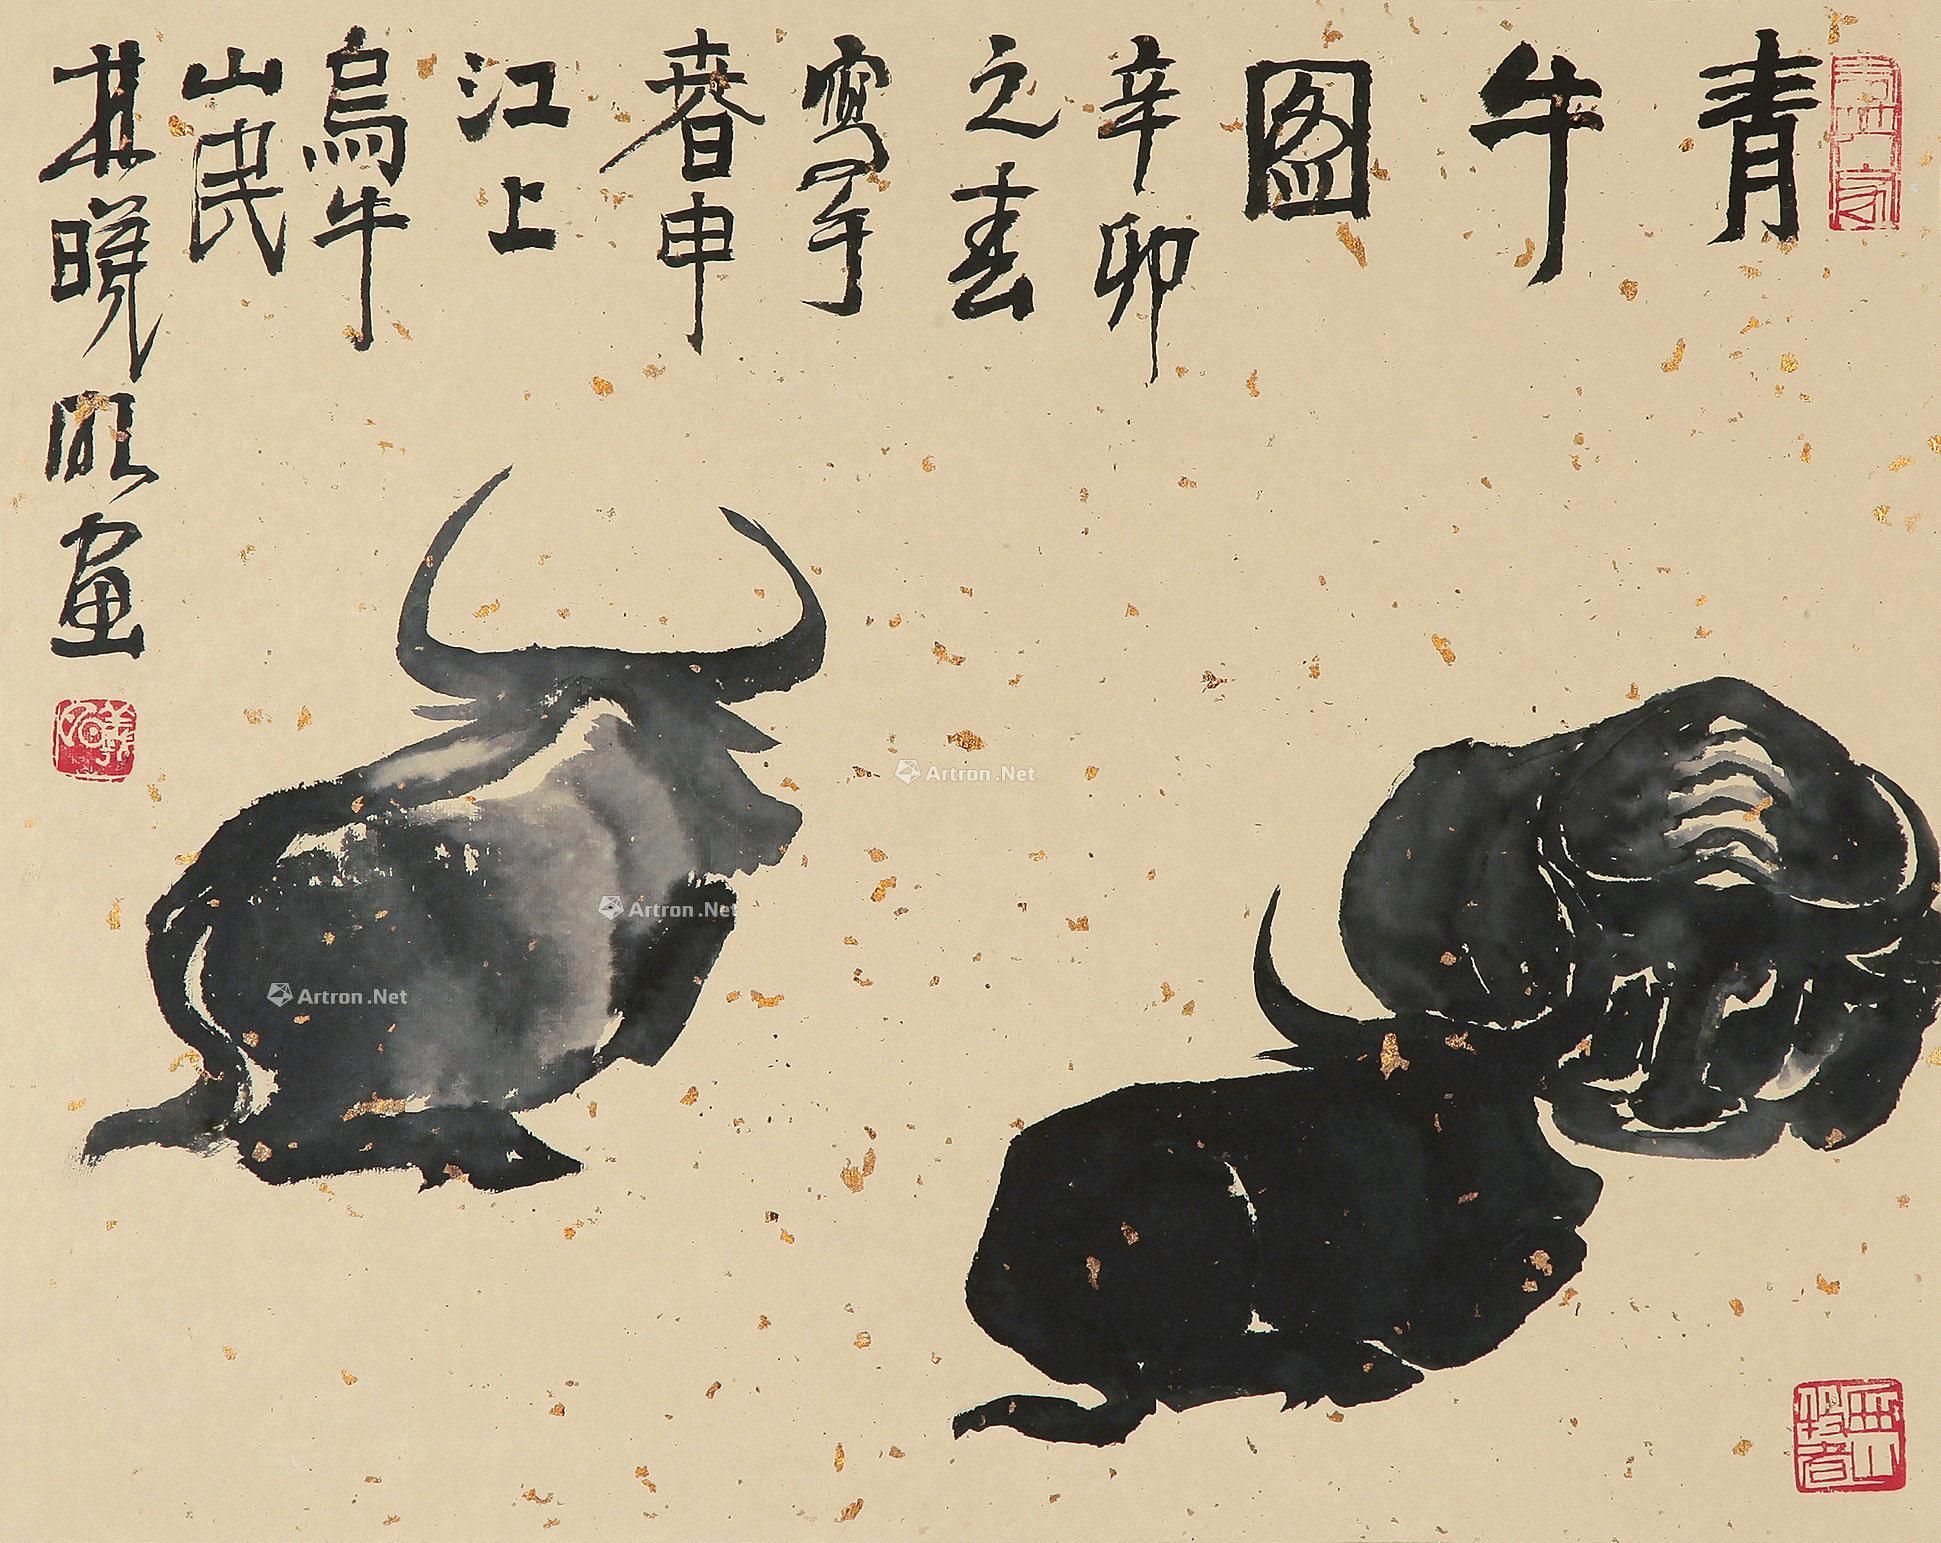 青
牛
图
辛卯
之春
寫于
春申
江上
烏牛
山民
林曦明画
Artron.Net
Artron.Net
Artron.Net